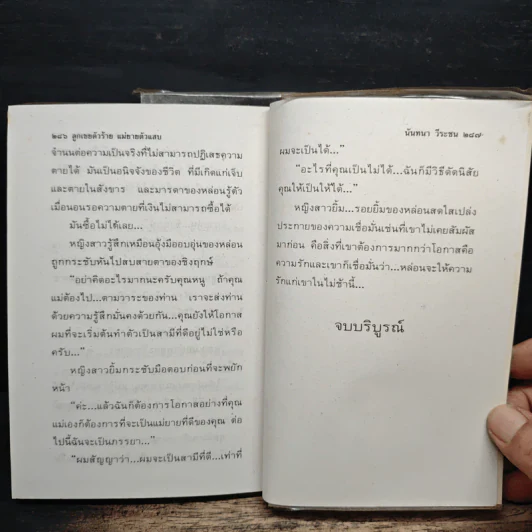 ๒๘๖ ลูกเขยตัวร้าย แม่ยายตัวแสบ
จำนนต่อความเป็นจริงที่ไม่สามารถปฏิเสธความ
ตายได้ มันเป็นอนิจจังของชีวิต ที่มีเกิดแก่เจ็บ
และตายในสังขาร และมารดาของหล่อนรู้ตัว
เมื่อนอนรอความตายที่เงินไม่สามารถซื้อได้
มันซื้อไม่ได้เลย...
หญิงสาวรู้สึกเหมือนอุ้งมืออบอุ่นของหล่อน
ถูกกระชับหันไปสบสายตาของชิงฤกษ์
“อย่าคิดอะไรมากนะครับคุณหนู ถ้าคุณ
แม่ต้องไป...ตามวาระของท่าน เราจะส่งท่าน
ด้วยความรู้สึกมั่นคงด้วยกัน...คุณยังให้โอกาส
ผมที่จะเริ่มต้นทำตัวเป็นสามีที่ดีอยู่ไม่ใช่หรือ
ครับ...”
หญิงสาวยิ้มกระชับมือตอบก่อนที่จะพยัก
หน้า
“ค่ะ...แล้วฉันก็ต้องการโอกาสอย่างที่คุณ
แม่เองก็ต้องการที่จะเป็นแม่ยายที่ดีของคุณ ต่อ
ไปนี้ฉันจะเป็นภรรยา...”
“ผมสัญญาว่า...ผมจะเป็นสามีที่ดี...เท่าที่
นันทนา วีระชน ๒๘๗
ผมจะเป็นได้...”
“อะไรที่คุณเป็นไม่ได้...ฉันก็มีวิธีดัดนิสัย
คุณให้เป็นให้ได้...”
หญิงสาวยิ้ม...รอยยิ้มของหล่อนสดใสเปล่ง
ประกายของความเชื่อมั่นเช่นที่เขาไม่เคยสัมผัส
มาก่อน คือสิ่งที่เขาต้องการมากกว่าโอกาสคือ
ความรักและเขาก็เชื่อมั่นว่า...หล่อนจะให้ความ
รักแก่เขาในไม่ช้านี้...
จบบริบูรณ์